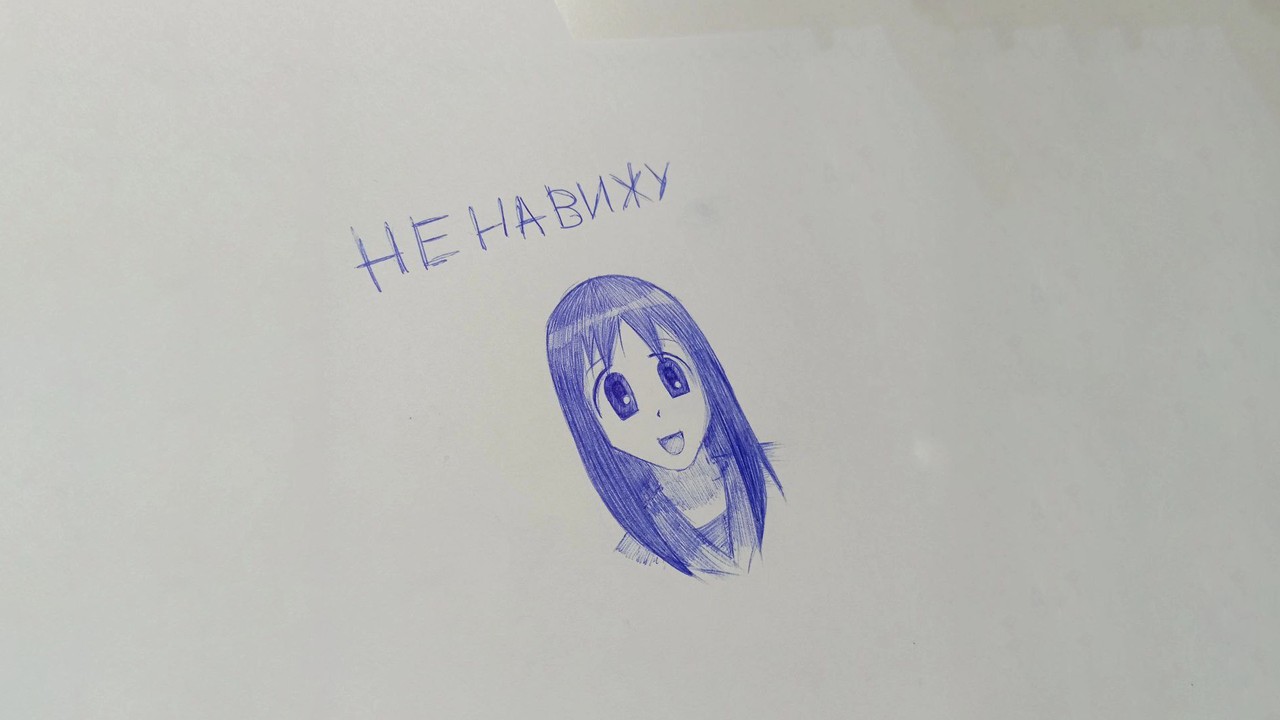 НЕНАВИЖУ